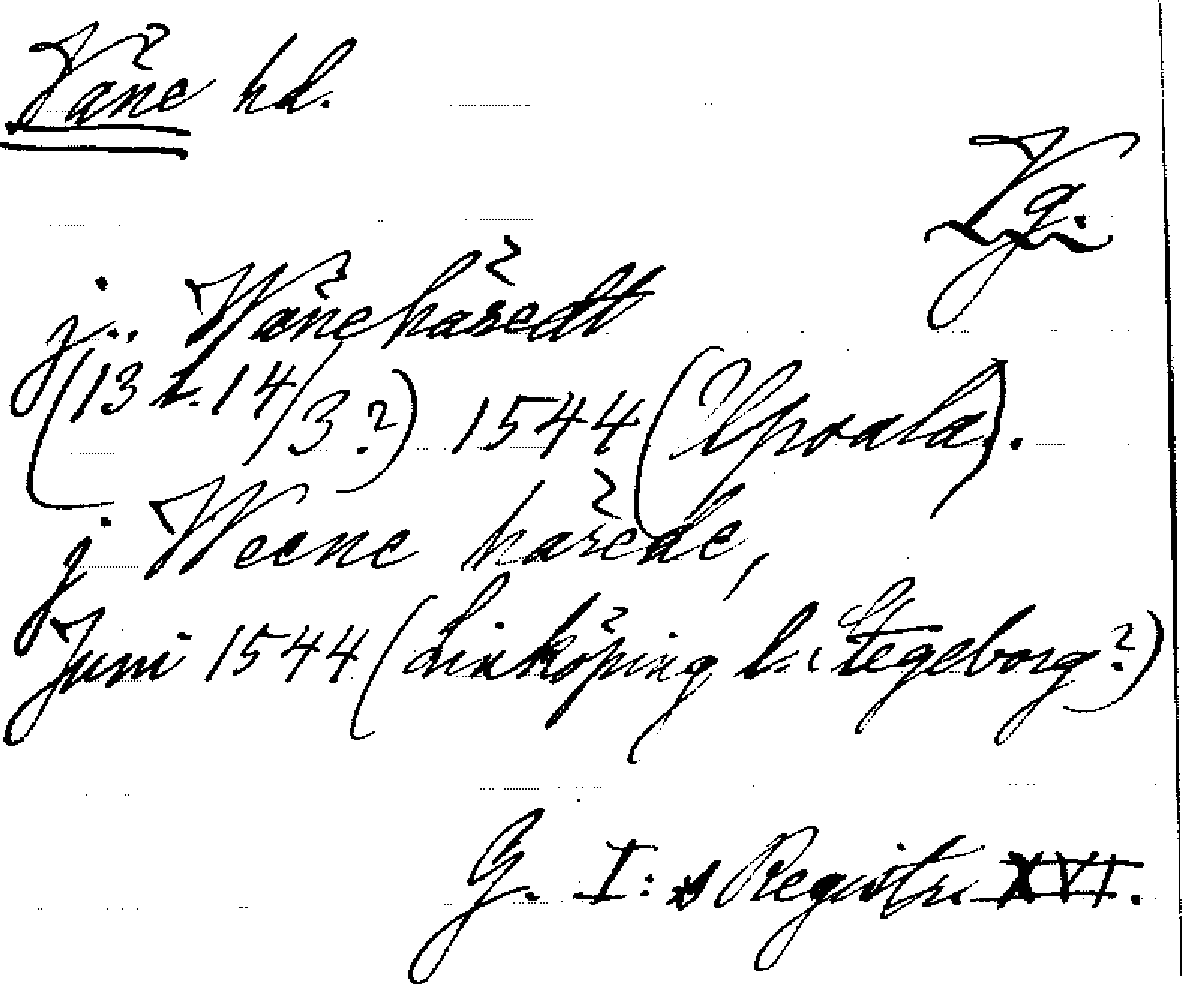 Väne hd.
Vg.
j.. Wäneháredt
(13 l. 14/3?) 1544 (Upsala).
j Weene hárede,
Juni 1544 (Linköping l. Stegeborg?)
G. I:s Registr. XVI.